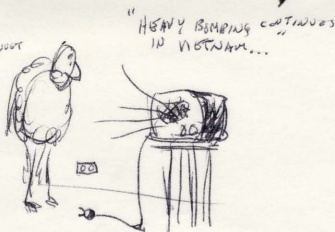 "HEAVY BOMBING CONTINUES
IN VIETNAM..."